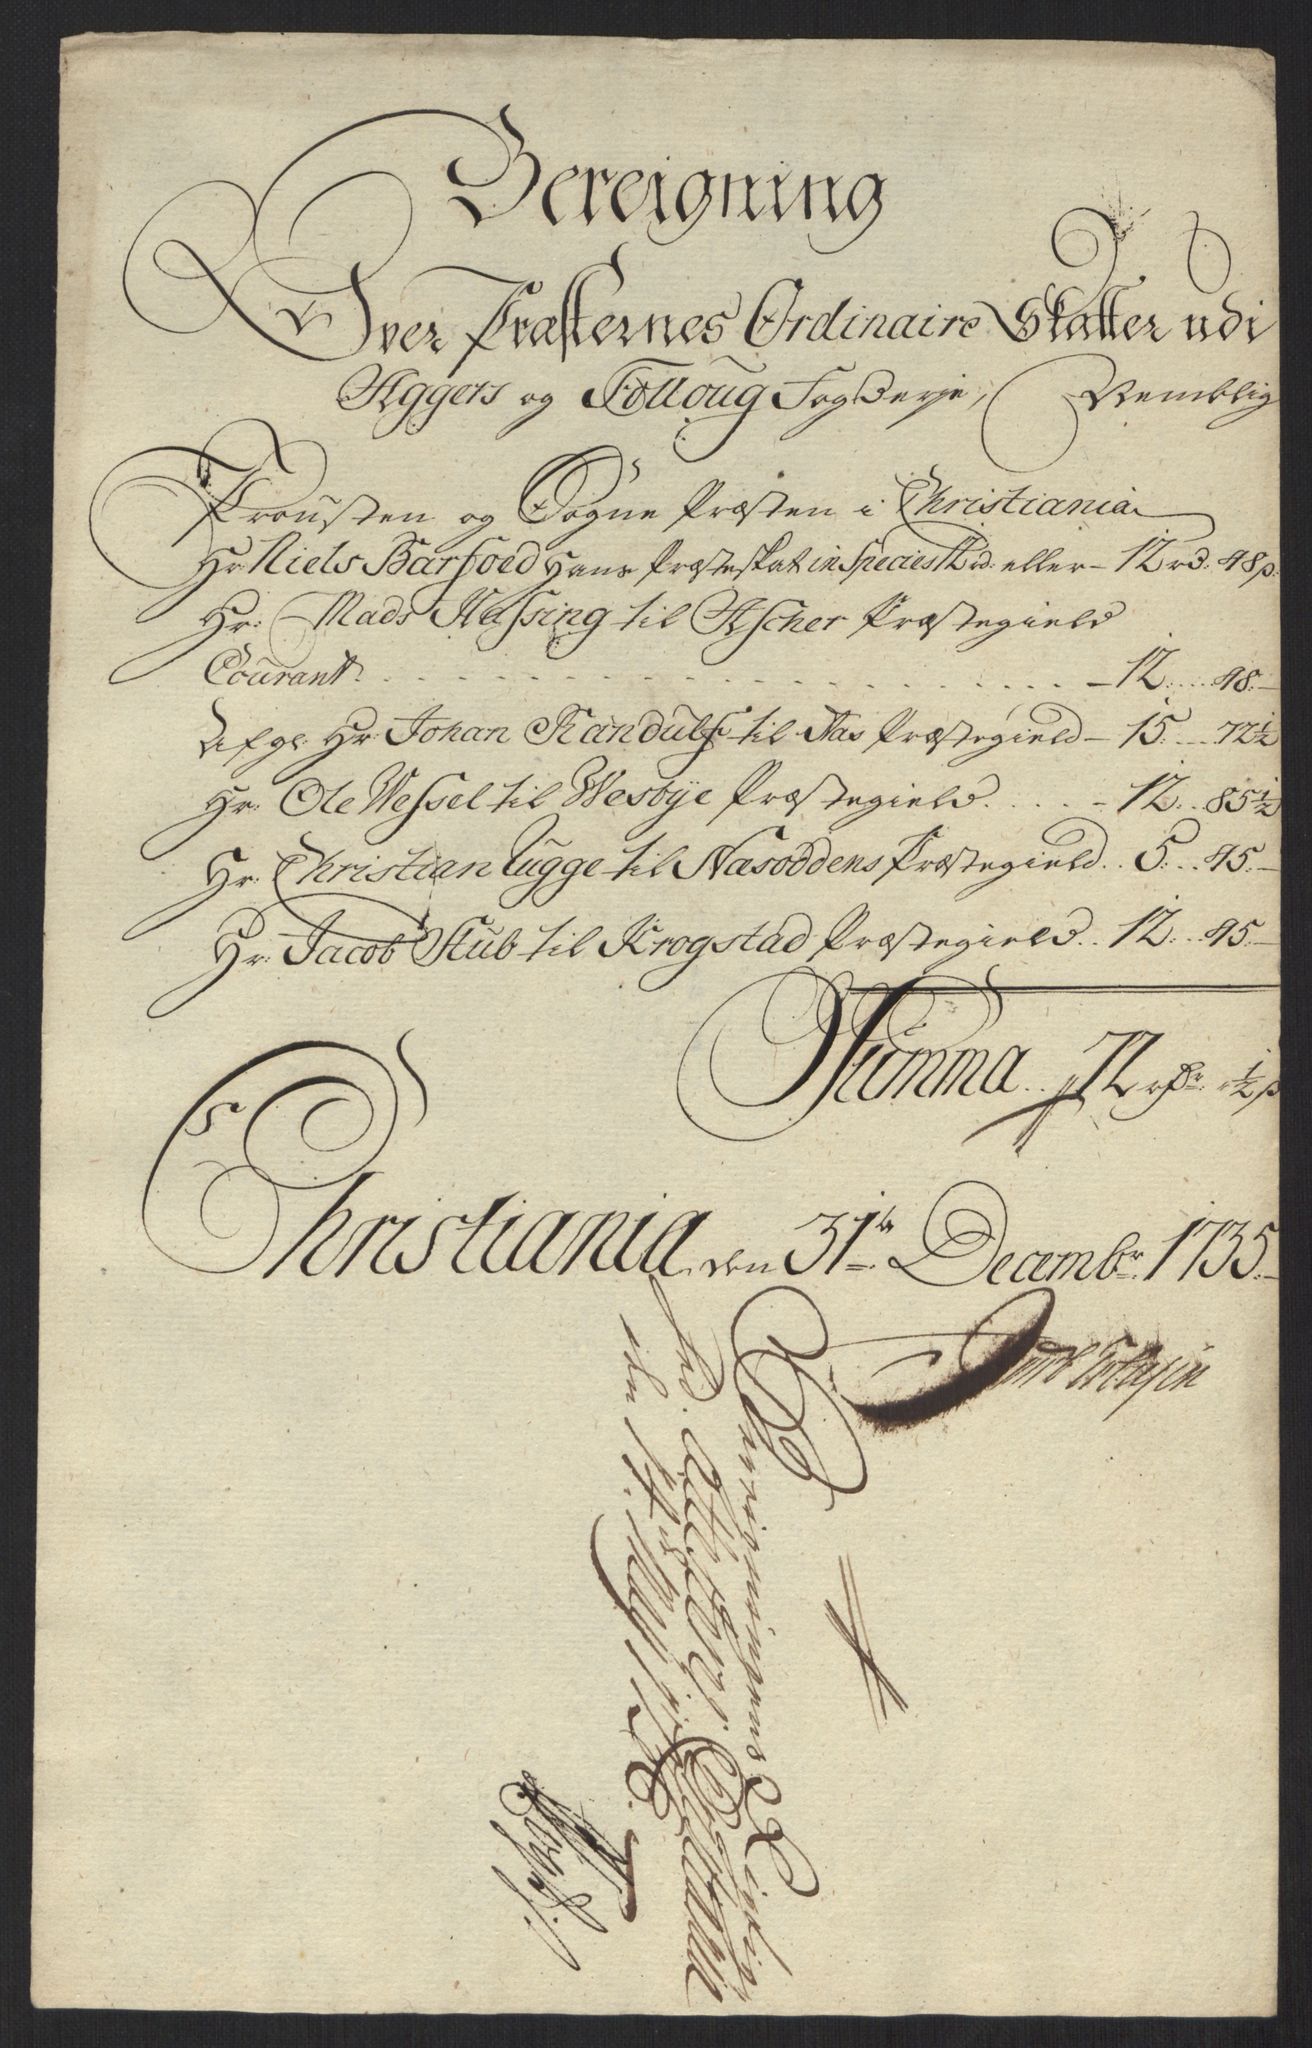 Bereigning
Over Præsternes Ordinaire Skatter udi
Aggers og Folloug Fogderje, Nemblig
Prousten og Sogne Præsten i Christiania
Hr Niels Barfoed Hans Præsteskat in Specie 12 rd: eller - 12 rd. 48 s.
Hr: Mads Nassing til Ascher Præstegield
Courant. - 12. 48.
Hr: Johan Randulf til Aas Præstegield - 15. 72½
Hr: Ole Wessel til Wesbye Præstegield. - 12. 85½
Hr: Christian Lugge til Næsoddens Præstegield. 5. 45.
Hr: Jacob Stub til Krogstad Præstegield. 12. 45.
Summa. 72 rdr. ½ s
Christiania den 31te Decembr: 1735.
Bereigningens Rigtig